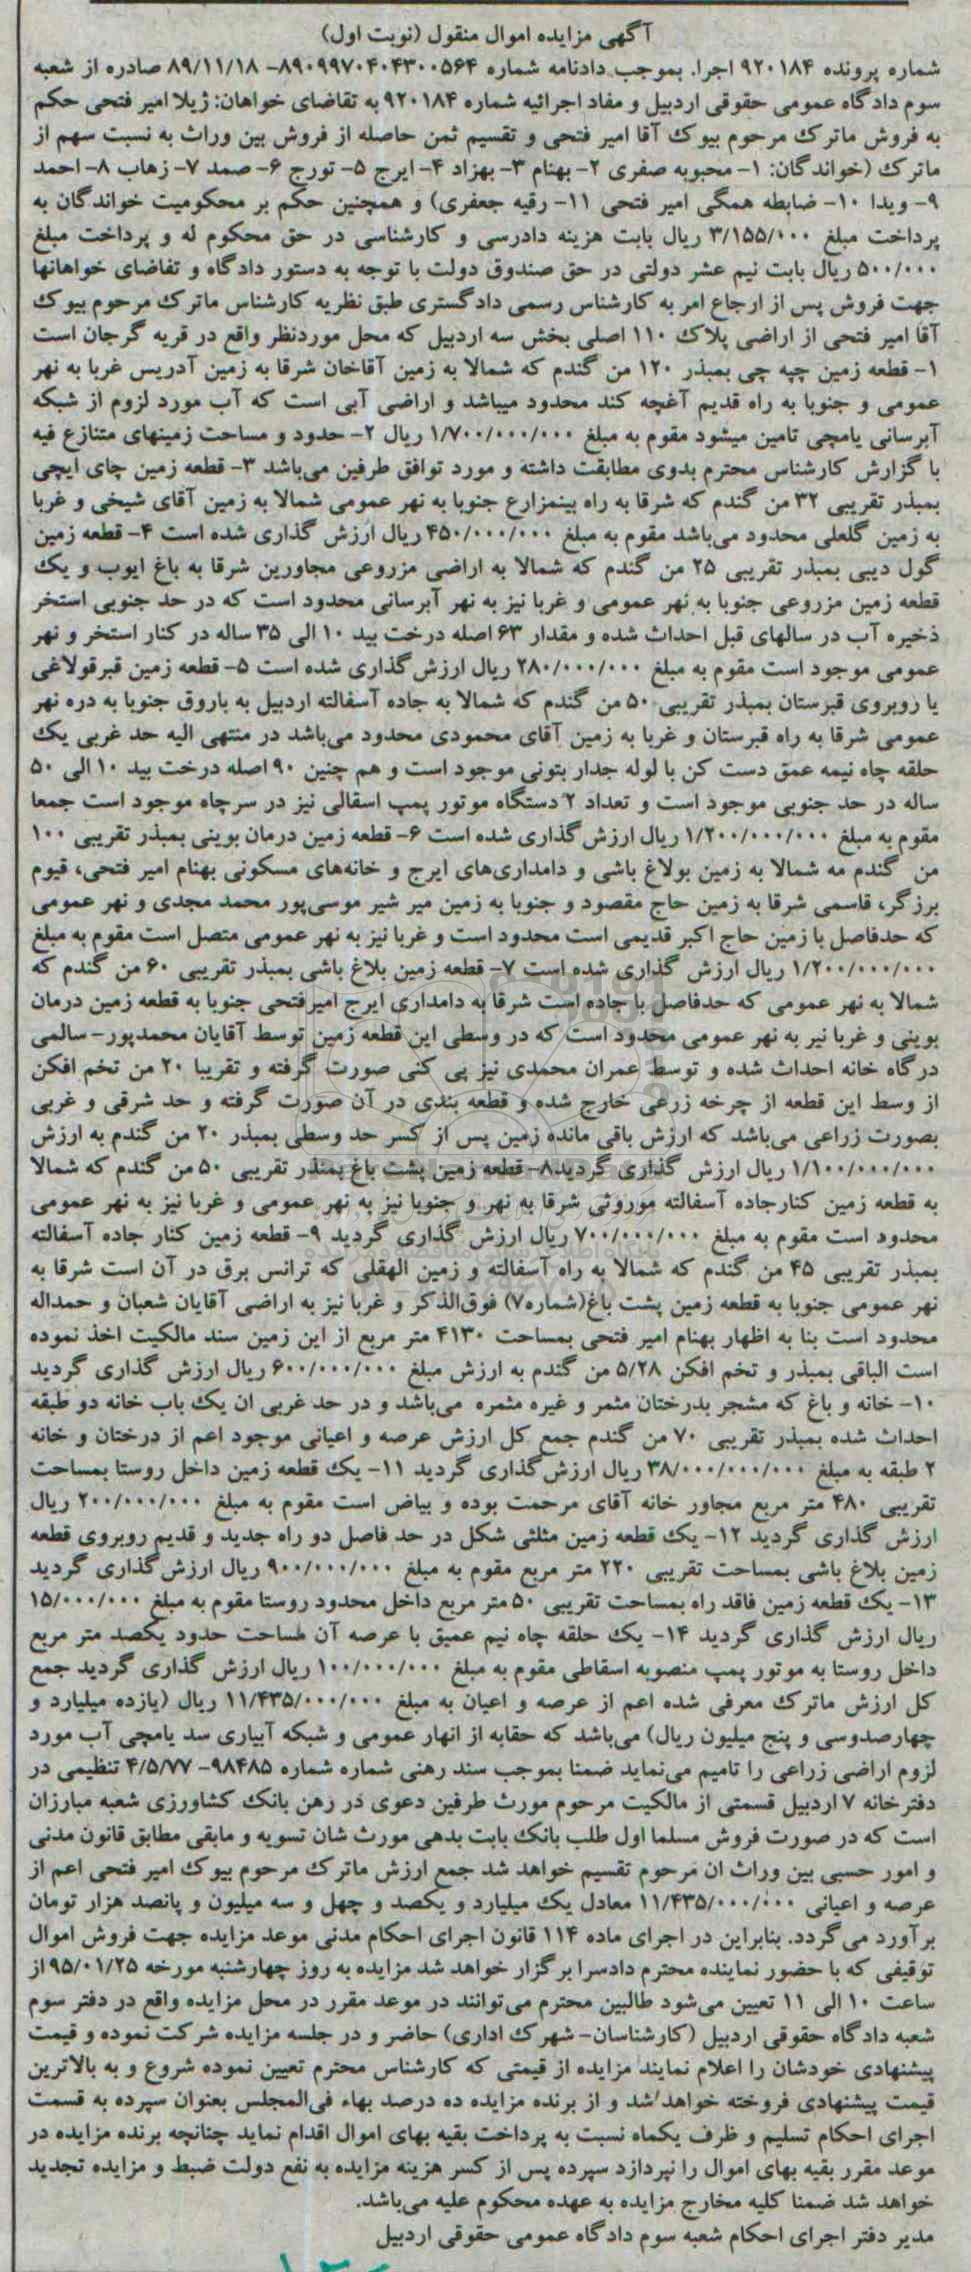 آگهی مزایده اموال منقول (نوبت اول)
شماره پرونده ۹۲۰۱۸۴ اجرا. بموجب دادنامه شماره ۸۹۰۹۹۷۰۴۰۴۳۰۰۵۶۴- ۸۹/۱۱/۱۸ صادره از شعبه
سوم دادگاه عمومی حقوقی اردبیل و مفاد اجرائیه شماره ۹۲۰۱۸۴ به تقاضای خواهان: ژیلا امیر فتحی حکم
به فروش ماترک مرحوم بیوک آقا امیر فتحی و تقسیم ثمن حاصله از فروش بین وراث به نسبت سهم از
ماترک (خواندگان: ۱- محبوبه صفری ۲- بهنام ۳- بهزاد ۴- ایرج ۵- تورج ۶- صمد ۷- زهاب ۸- احمد
۹- ویدا ۱۰- ضابطه همگی امیر فتحی ۱۱- رقیه جعفری) و همچنین حکم بر محکومیت خواندگان به
پرداخت مبلغ ۳/۱۵۵/۰۰۰ ریال بابت هزینه دادرسی و کارشناسی در حق محکوم له و پرداخت مبلغ
۵۰۰/۰۰۰ ریال بابت نیم عشر دولتی در حق صندوق دولت با توجه به دستور دادگاه و تقاضای خواهانها
جهت فروش پس از ارجاع امر به کارشناس رسمی دادگستری طبق نظریه کارشناس ماترک مرحوم بیوک
آقا امیر فتحی از اراضی پلاک ۱۱۰ اصلی بخش سه اردبیل که محل موردنظر واقع در قریه گرجان است
۱- قطعه زمین چپه چی بمبذر ۱۲۰ من گندم که شمالا به زمین آقاخان شرقا به زمین آدریس غربا به نهر
عمومی و جنوبا به راه قدیم آغچه کند محدود میباشد و اراضی آبی است که آب مورد لزوم از شبکه
آبرسانی یامچی تامین میشود مقوم به مبلغ ۱/۷۰۰/۰۰۰/۰۰۰ ریال ۲- حدود و مساحت زمینهای متنازع فیه
با گزارش کارشناس محترم بدوی مطابقت داشته و مورد توافق طرفین می‌باشد ۳- قطعه زمین چای ایچی
بمبذر تقریبی ۳۲ من گندم که شرقا به راه بینمزارع جنوبا به نهر عمومی شمالا به زمین آقای شیخی و غربا
به زمین گلعلی محدود می‌باشد مقوم به مبلغ ۴۵۰/۰۰۰/۰۰۰ ریال ارزش گذاری شده است ۴- قطعه زمین
گول دیبی بمبذر تقریبی ۲۵ من گندم که شمالا به اراضی مزروعی مجاورین شرقا به باغ ایوب و یک
قطعه زمین مزروعی جنوبا به نهر عمومی و غربا نیز به نهر آبرسانی محدود است که در حد جنوبی استخر
ذخیره آب در سالهای قبل احداث شده و مقدار ۶۳ اصله درخت بید ۱۰ الی ۳۵ ساله در کنار استخر و نهر
عمومی موجود است مقوم به مبلغ ۲۸۰/۰۰۰/۰۰۰ ریال ارزش گذاری شده است ۵- قطعه زمین قبرقولاغی
یا روبروی قبرستان بمبذر تقریبی ۵۰ من گندم که شمالا به جاده آسفالته اردبیل به باروق جنوبا به دره نهر
عمومی شرقا به راه قبرستان و غربا به زمین آقای محمودی محدود می‌باشد در منتهی الیه حد غربی یک
حلقه چاه نیمه عمق دست کن با لوله جدار بتونی موجود است و هم چنین ۹۰ اصله درخت بید ۱۰ الی ۵۰
ساله در حد جنوبی موجود است و تعداد ۲ دستگاه موتور پمپ اسقالی نیز در سرچاه موجود است جمعا
مقوم به مبلغ ۱/۲۰۰/۰۰۰/۰۰۰ ریال ارزش گذاری شده است ۶- قطعه زمین درمان بوینی بمبذر تقریبی ۱۰۰
من گندم مه شمالا به زمین بولاغ باشی و دامداری‌های ایرج و خانه‌های مسکونی بهنام امیر فتحی، قیوم
برزگر، قاسمی شرقا به زمین حاج مقصود و جنوبا به زمین میر شیر موسی‌پور محمد مجدی و نهر عمومی
که حدفاصل با زمین حاج اکبر قدیمی است محدود است و غربا نیز به نهر عمومی متصل است مقوم به مبلغ
۱/۲۰۰/۰۰۰/۰۰۰ ریال ارزش گذاری شده است ۷- قطعه زمین بلاغ باشی بمبذر تقریبی ۶۰ من گندم که
شمالا به نهر عمومی که حدفاصل با جاده است شرقا به دامداری ایرج امیرفتحی جنوبا به قطعه زمین درمان
بوینی و غربا نیر به نهر عمومی محدود است که در وسطی این قطعه زمین توسط آقایان محمدپور- سالمی
درگاه خانه احداث شده و توسط عمران محمدی نیز پی کنی صورت گرفته و تقریبا ۲۰ من تخم افکن
از وسط این قطعه از چرخه زرعی خارج شده و قطعه بندی در آن صورت گرفته و حد شرقی و غربی
بصورت زراعی می‌باشد که ارزش باقی مانده زمین پس از کسر حد وسطی بمبذر ۲۰ من گندم به ارزش
۱/۱۰۰/۰۰۰/۰۰۰ ریال ارزش گذاری گردید۸- قطعه زمین پشت باغ بمبذر تقریبی ۵۰ من گندم که شمالا
به قطعه زمین کنارجاده آسفالته موروثی شرقا به نهر و جنوبا نیز به نهر عمومی و غربا نیز به نهر عمومی
محدود است مقوم به مبلغ ۷۰۰/۰۰۰/۰۰۰ ریال ارزش گذاری گردید ۹- قطعه زمین کنار جاده آسفالته
بمبذر تقریبی ۴۵ من گندم که شمالا به راه آسفالته و زمین الهقلی که ترانس برق در آن است شرقا به
نهر عمومی جنوبا به قطعه زمین پشت باغ(شماره۷) فوق‌الذکر و غربا نیز به اراضی آقایان شعبان و حمداله
محدود است بنا به اظهار بهنام امیر فتحی بمساحت ۴۱۳۰ متر مربع از این زمین سند مالکیت اخذ نموده
است الباقی بمبذر و تخم افکن ۵/۲۸ من گندم به ارزش مبلغ ۶۰۰/۰۰۰/۰۰۰ ریال ارزش گذاری گردید
۱۰- خانه و باغ که مشجر بدرختان مثمر و غیره مثمره می‌باشد و در حد غربی ان یک باب خانه دو طبقه
احداث شده بمبذر تقریبی ۷۰ من گندم جمع کل ارزش عرصه و اعیانی موجود اعم از درختان و خانه
۲ طبقه به مبلغ ۳۸/۰۰۰/۰۰۰/۰۰۰ ریال ارزش گذاری گردید ۱۱- یک قطعه زمین داخل روستا بمساحت
تقریبی ۴۸۰ متر مربع مجاور خانه آقای مرحمت بوده و بیاض است مقوم به مبلغ ۲۰۰/۰۰۰/۰۰۰ ریال
ارزش گذاری گردید ۱۲- یک قطعه زمین مثلثی شکل در حد فاصل دو راه جدید و قدیم روبروی قطعه
زمین بلاغ باشی بمساحت تقریبی ۲۲۰ متر مربع مقوم به مبلغ ۹۰۰/۰۰۰/۰۰۰ ریال ارزش گذاری گردید
۱۳- یک قطعه زمین فاقد راه بمساحت تقریبی ۵۰ متر مربع داخل محدود روستا مقوم به مبلغ ۱۵/۰۰۰/۰۰۰
ریال ارزش گذاری گردید ۱۴- یک حلقه چاه نیم عمیق با عرصه آن مساحت حدود یکصد متر مربع
داخل روستا به موتور پمپ منصوبه اسقاطی مقوم به مبلغ ۱۰۰/۰۰۰/۰۰۰ ریال ارزش گذاری گردید جمع
کل ارزش ماترک معرفی شده اعم از عرصه و اعیان به مبلغ ۱۱/۴۳۵/۰۰۰/۰۰۰ ریال (یازده میلیارد و
چهارصدوسی و پنج میلیون ریال) می‌باشد که حقابه از انهار عمومی و شبکه آبیاری سد یامچی آب مورد
لزوم اراضی زراعی را تامیم می‌نماید ضمنا بموجب سند رهنی شماره شماره ۹۸۴۸۵- ۴/۵/۷۷ تنظیمی در
دفترخانه ۷ اردبیل قسمتی از مالکیت مرحوم مورث طرفین دعوی در رهن بانک کشاورزی شعبه مبارزان
است که در صورت فروش مسلما اول طلب بانک بابت بدهی مورث شان تسویه و مابقی مطابق قانون مدنی
و امور حسبی بین وراث ان مرحوم تقسیم خواهد شد جمع ارزش ماترک مرحوم بیوک امیر فتحی اعم از
عرصه و اعیانی ۱۱/۴۳۵/۰۰۰/۰۰۰ معادل یک میلیارد و یکصد و چهل و سه میلیون و پانصد هزار تومان
برآورد می گردد. بنابراین در اجرای ماده ۱۱۴ قانون اجرای احکام مدنی موعد مزایده جهت فروش اموال
توقیفی که با حضور نماینده محترم دادسرا برگزار خواهد شد مزایده به روز چهارشنبه مورخه ۹۵/۰۱/۲۵ از
ساعت ۱۰ الی ۱۱ تعیین می‌شود طالبین محترم می‌توانند در موعد مقرر در محل مزایده واقع در دفتر سوم
شعبه دادگاه حقوقی اردبیل (کارشناسان- شهرک اداری) حاضر و در جلسه مزایده شرکت نموده و قیمت
پیشنهادی خودشان را اعلام نمایند مزایده از قیمتی که کارشناس محترم تعیین نموده شروع و به بالاترین
قیمت پیشنهادی فروخته خواهد شد و از برنده مزایده ده درصد بهاء فی‌المجلس بعنوان سپرده به قسمت
اجرای احکام تسلیم و ظرف یکماه نسبت به پرداخت بقیه بهای اموال اقدام نماید چنانچه برنده مزایده در
موعد مقرر بقیه بهای اموال را نپردازد سپرده پس از کسر هزینه مزایده به نفع دولت ضبط و مزایده تجدید
خواهد شد ضمنا کلیه مخارج مزایده به عهده محکوم علیه می‌باشد.
مدیر دفتر اجرای احکام شعبه سوم دادگاه عمومی حقوقی اردبیل